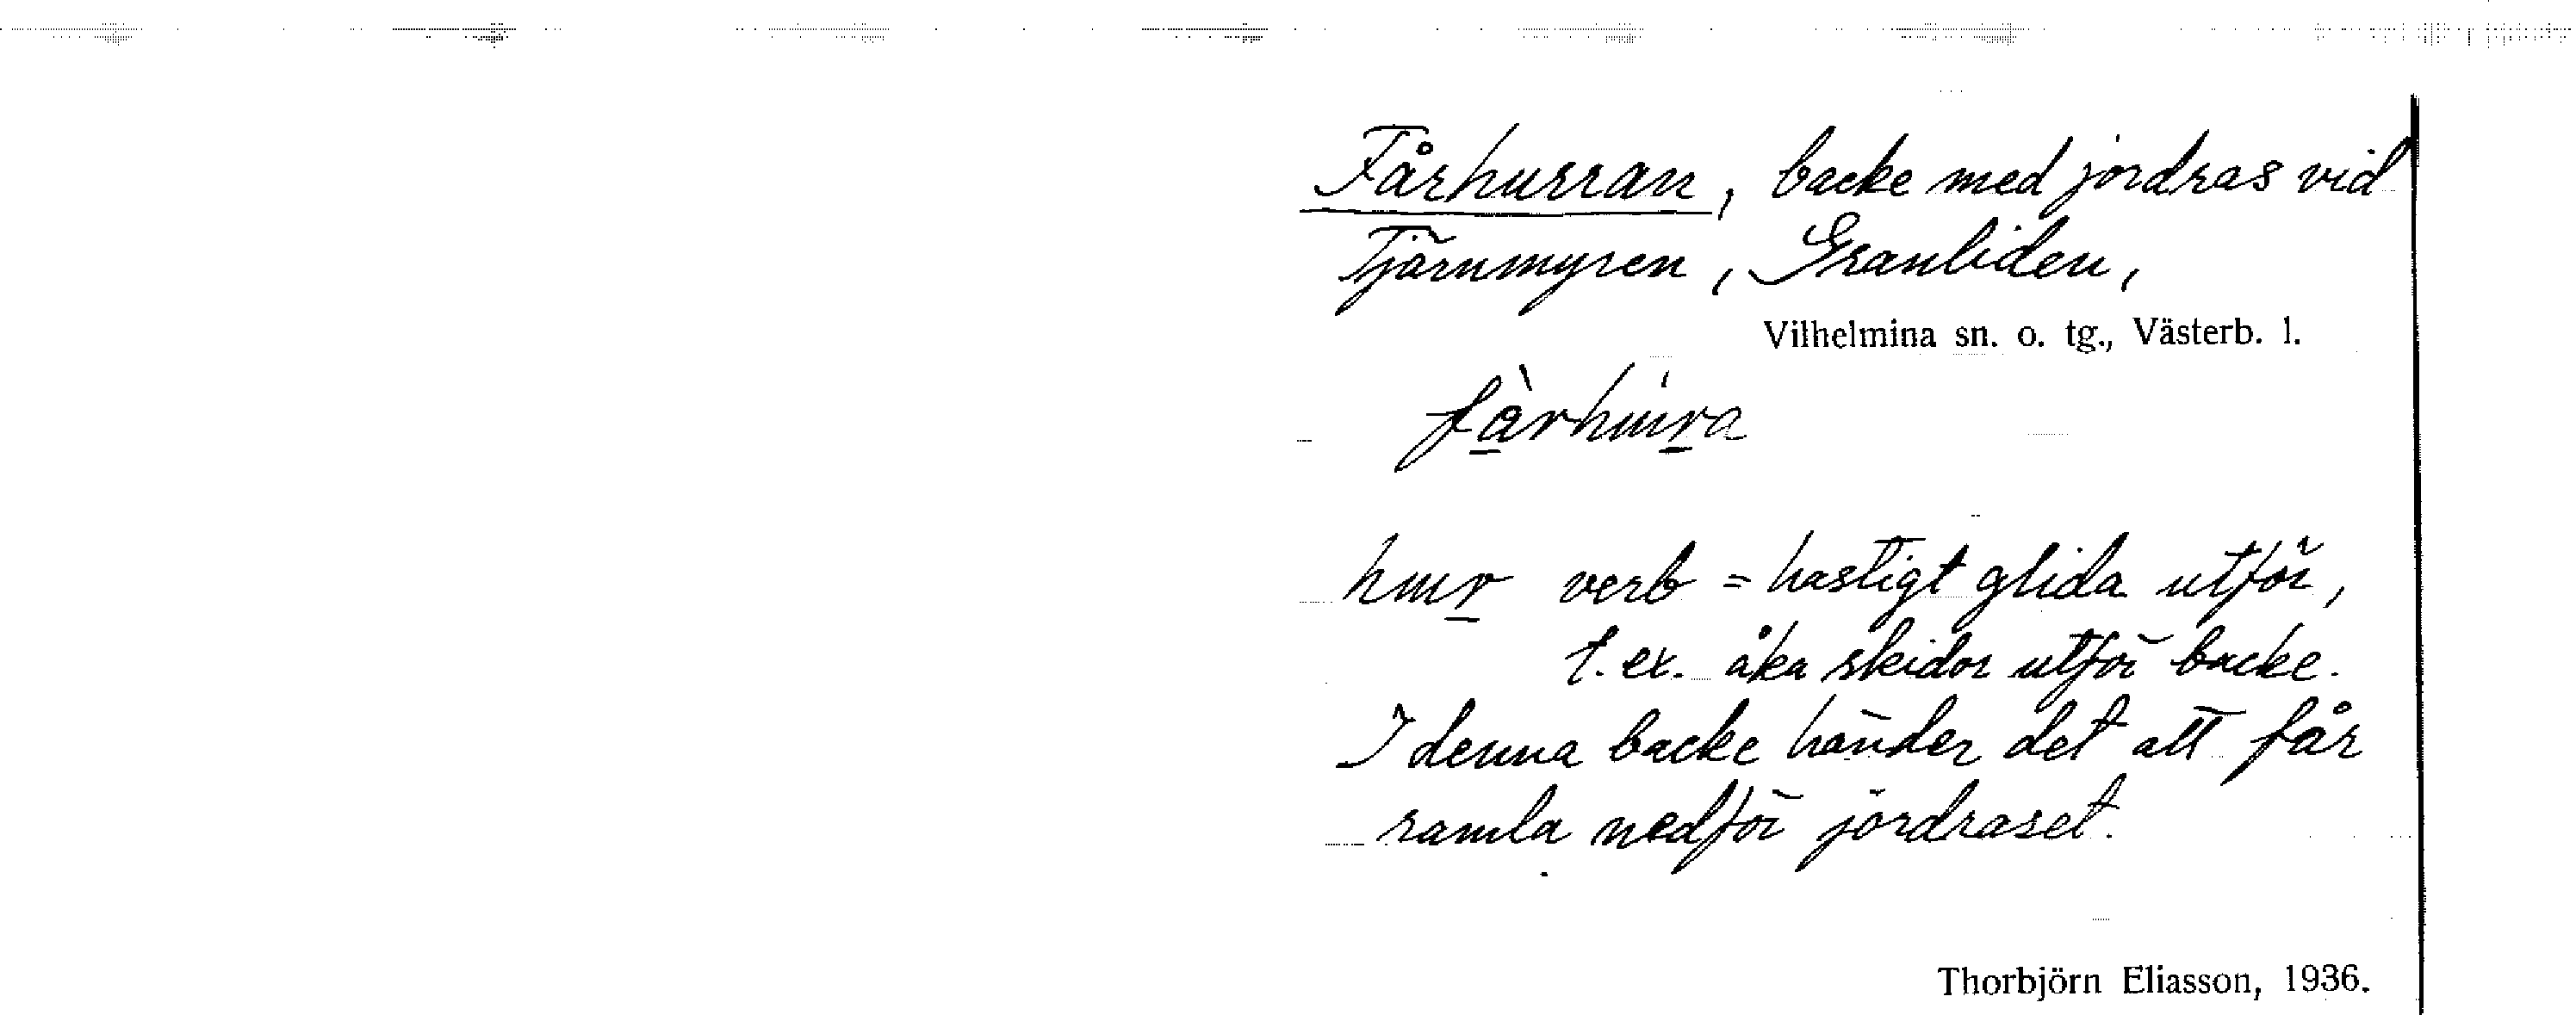 Fårhurran, backe med jordras vid
Tjärnmyren, Granliden,
Vilhelmina sn. o. tg., Västerb. l.
verb = hastigt glida utför,
t. ex. åka skidor utför backe.
I denna backe händer det att får
ramla nedför jordraset.
Thorbjörn Eliasson, 1936.